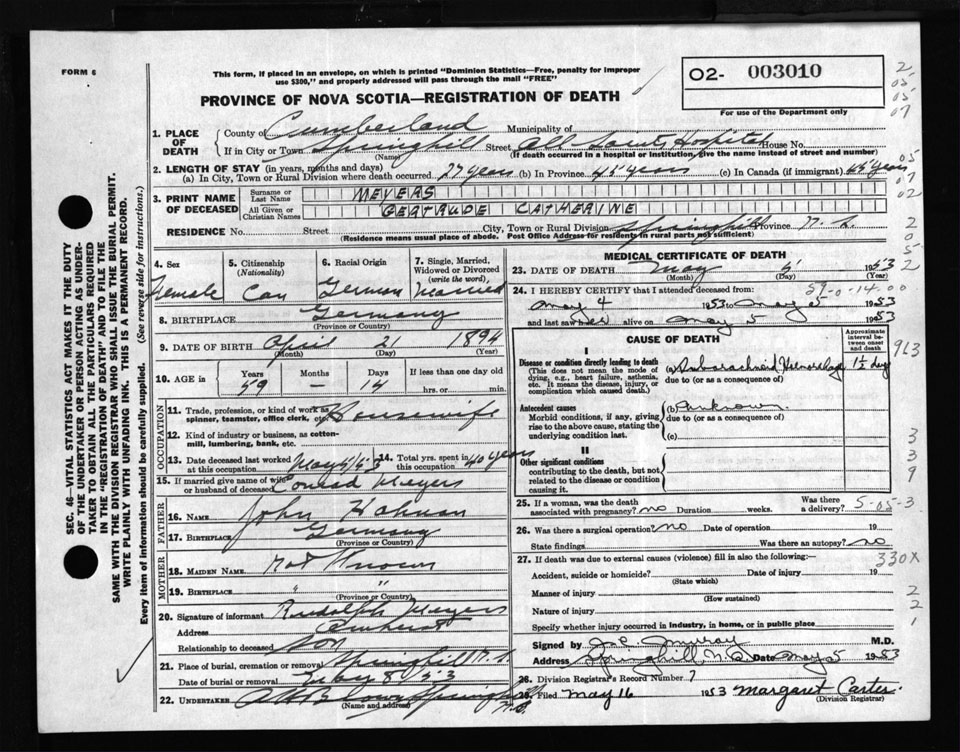 FORM 6
This form, if placed in an envelope, on which is printed "Dominion Statistics—Free, penalty for improper
use $300," and properly addressed will pass through the mail "FREE"
O2- 003010
For use of the Department only
2
05
05
07
PROVINCE OF NOVA SCOTIA—REGISTRATION OF DEATH
1. PLACE OF DEATH
County of Cumberland Municipality of
If in City or Town Springhill Street All Saints Hospital House No.
(Name) (If death occurred in a hospital or institution, give the name instead of street and number)
2. LENGTH OF STAY (in years, months and days)
(a) In City, Town or Rural Division where death occurred 27 years (b) In Province 45 years (c) In Canada (if immigrant) 45 years
05
07
02
3. PRINT NAME OF DECEASED
Surname or Last Name MEYERS
All Given or Christian Names GERTRUDE CATHERINE
RESIDENCE No. Street City, Town or Rural Division Springhill Province N.S.
(Residence means usual place of abode. Post Office Address for residents in rural parts not sufficient)
2
0
5
2
4. Sex
Female
5. Citizenship (Nationality)
Can
6. Racial Origin
German
7. Single, Married, Widowed or Divorced (write the word)
Married
8. BIRTHPLACE Germany
(Province or Country)
9. DATE OF BIRTH April 21 1894
(Month) (Day) (Year)
10. AGE in Years Months Days If less than one day old
59 — 14 hrs. or min.
OCCUPATION
11. Trade, profession, or kind of work as spinner, teamster, office clerk, etc. Housewife
12. Kind of industry or business, as cotton-mill, lumbering, bank, etc.
13. Date deceased last worked at this occupation May 4/53
14. Total yrs. spent in this occupation 40 years
15. If married give name of wife or husband of deceased Conrad Meyers
FATHER
16. NAME John
17. BIRTHPLACE Germany
(Province or Country)
MOTHER
18. MAIDEN NAME Not Known
19. BIRTHPLACE " "
(Province or Country)
20. Signature of informant Rudolph Meyers
Address Amherst
Relationship to deceased Son
21. Place of burial, cremation or removal Springhill N.S.
Date of burial or removal 8/53
22. UNDERTAKER A H Brown Springhill N.S.
(Name and address)
MEDICAL CERTIFICATE OF DEATH
23. DATE OF DEATH May 5 1953
(Month) (Day)
24. I HEREBY CERTIFY that I attended deceased from: 59-0-14.00
May 4 1953 to May 5 1953
and last saw her alive on May 5 1953
CAUSE OF DEATH
Approximate interval between onset and death
I
Disease or condition directly leading to death
(This does not mean the mode of dying, e.g., heart failure, asthenia, etc. It means the disease, injury, or complication which caused death.)
(a) Subarachnoid Hemorrhage 1½ day
due to (or as a consequence of)
963
Antecedent causes
Morbid conditions, if any, giving rise to the above cause, stating the underlying condition last.
(b) Unknown
due to (or as a consequence of)
(c)
II
Other significant conditions
contributing to the death, but not related to the disease or condition causing it.
3
3
9
25. If a woman, was the death associated with pregnancy? no Duration weeks. Was there a delivery? 5-05-3
26. Was there a surgical operation? no Date of operation 19
State findings Was there an autopsy? no
27. If death was due to external causes (violence) fill in also the following:— 330X
Accident, suicide or homicide? Date of injury 19
(State which)
Manner of injury
(How sustained)
Nature of injury
Specify whether injury occurred in industry, in home, or in public place
2
2
1
Signed by J. C. Murray M.D.
Address Springhill, N.S. Date May 5 1953
28. Division Registrar's Record Number 7
Filed May 16 1953 Margaret Carter
(Division Registrar)
SEC. 46—VITAL STATISTICS ACT MAKES IT THE DUTY
OF THE UNDERTAKER OR PERSON ACTING AS UNDER-
TAKER TO OBTAIN ALL THE PARTICULARS REQUIRED
IN THE "REGISTRATION OF DEATH" AND TO FILE THE
SAME WITH THE DIVISION REGISTRAR WHO SHALL ISSUE THE BURIAL PERMIT.
WRITE PLAINLY WITH UNFADING INK. THIS IS A PERMANENT RECORD.
Every item of information should be carefully supplied. (See reverse side for instructions.)